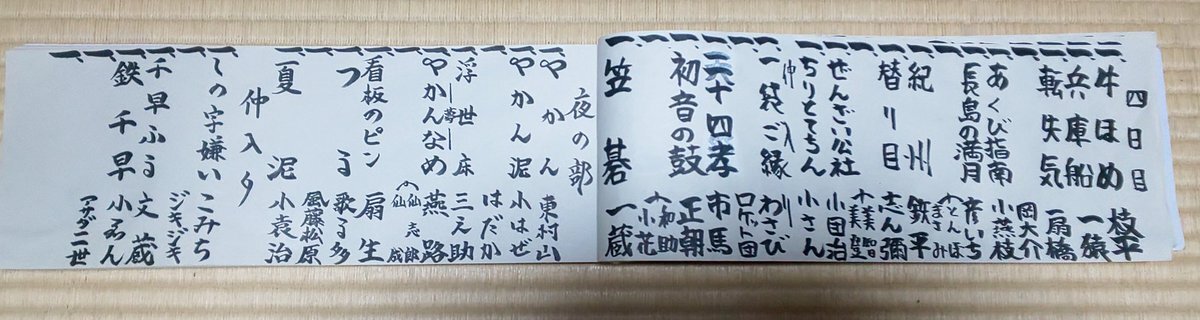 四日目
一、牛ほめ 枝平
一、兵庫船 一猿
一、転失気 扇橋
一、岡大介
一、あくび指南 小燕枝
一、長島の満月 彦いち
一、とんぼ まさみ
一、紀州 鉄平
一、替り目 志ん彌
一、美智 美登
一、ぜんざい公社 小団治
一、ちりとてちん 小さん
仲入り
一、ご縁 わさび
一、ロケット団
一、二十四孝 市馬
一、初音の鼓 正朝
一、和助 小花
一、笠碁 一蔵
夜の部
一、やかん 東村山
一、やかん泥 小はぜ
一、はだか
一、浮世床 夢 三之助
一、やかんなめ 燕路
一、仙志郎 仙成
一、看板のピン 扇生
一、つる 歌る多
一、風藤松原
一、夏泥 小袁治
仲入り
一、しの字嫌い こみち
一、ジキジキ
一、千早ふる 文蔵
一、鉄千早 小ゑん
一、アサダ二世